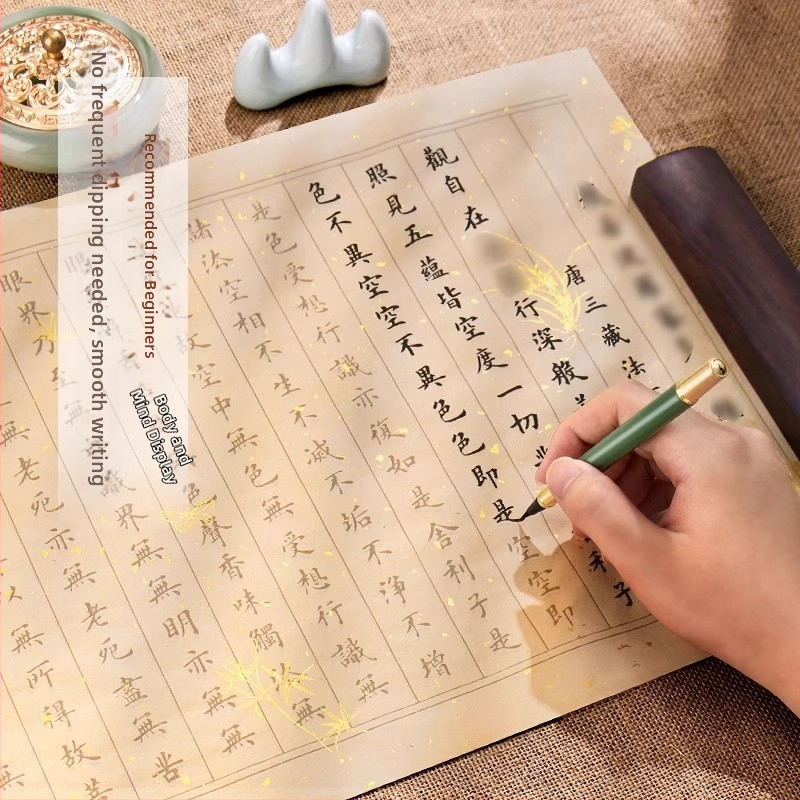 唐三藏法
觀自在
行深般
利子
照見五蘊皆空度一切
色不異空空不異色色即是空空即
是色受想行識亦復如是舍利子是
諸法空相不生不滅不垢不淨不增
故空中無色無受想行識無
眼
色聲香味觸法無
眼界乃至無
識界無無明亦無無
無老死亦無老死盡無苦
無所得故菩
No frequent dipping needed, smooth writing
Recommended for Beginners
Body and
Mind Display